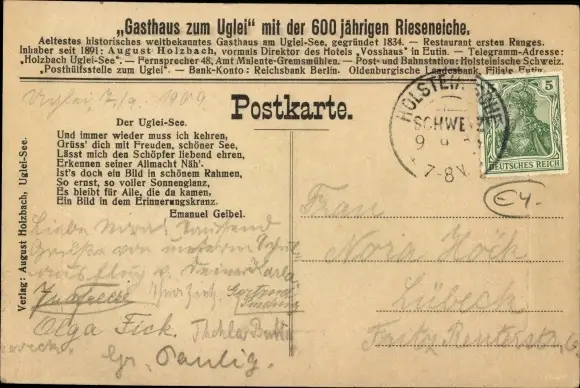 „Gasthaus zum Uglei“ mit der 600 jährigen Rieseneiche.
Aeltestes historisches weltbekanntes Gasthaus am Uglei-See, gegründet 1834. — Restaurant ersten Ranges.
Inhaber seit 1891: August Holzbach, vormals Direktor des Hotels „Vosshaus“ in Eutin. — Telegramm-Adresse:
„Holzbach Uglei-See“. — Fernsprecher 48, Amt Malente-Gremsmühlen. — Post- und Bahnstation: Holsteinische Schweiz.
„Posthülfsstelle zum Uglei“. — Bank-Konto: Reichsbank Berlin. Oldenburgische Landesbank, Filiale Eutin.
Uglei, 1909
Postkarte.
HOLSTEIN
SCHWEIZ
7-8V
5
DEUTSCHES REICH
€4.
Der Uglei-See.
Und immer wieder muss ich kehren,
Grüss' dich mit Freuden, schöner See,
Lässt mich den Schöpfer liebend ehren,
Erkennen seiner Allmacht Näh'.
Ist's doch ein Bild in schönem Rahmen,
So ernst, so voller Sonnenglanz,
Es bleibt für Alle, die da kamen,
Ein Bild in dem Erinnerungskranz.
Emanuel Geibel.
Verlag: August Holzbach, Uglei-See.
Liebe Nora! Tausend
Grüße von unserem
Olga Fick. Thekla
Paulig.
Frau
Nora Höck
Lübeck
Fritz Reuterstr.